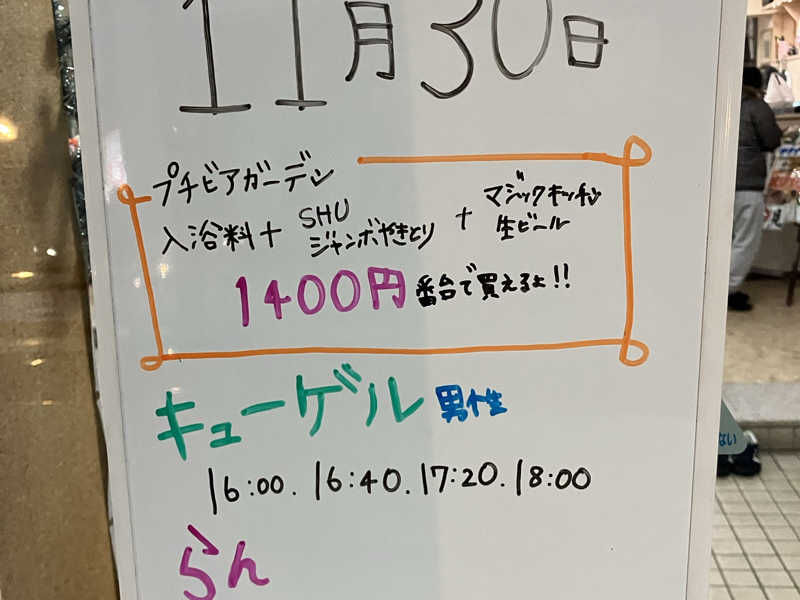 11月30日
プチビアガーデン
入浴料+ SHU ジャンボやきとり + マジックキッチン 生ビール
1400円 番台で買えるよ!!
キューゲル 男性
16:00. 16:40. 17:20. 18:00
らん
ない